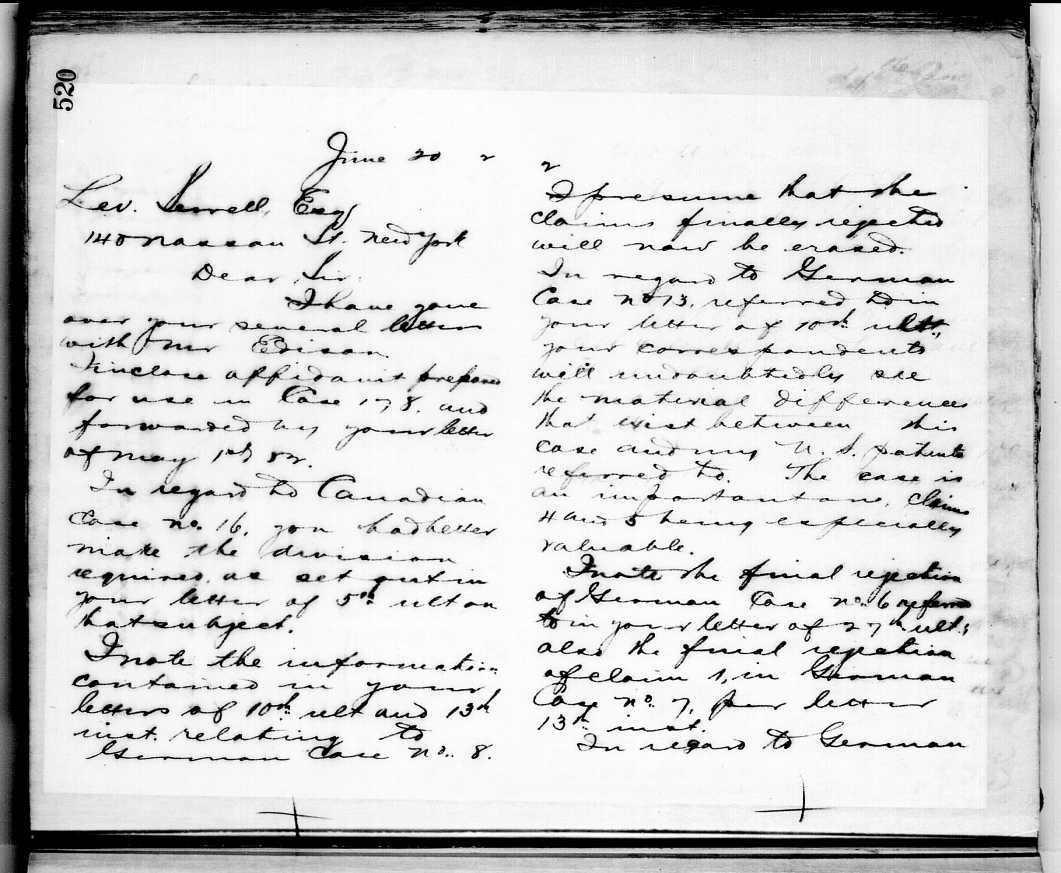 520
June 20 2
Lev. Serrell, Esq
140 Nassau St. New York
Dear Sir.
I have gone
over your several letters
with Mr Edison.
I inclose affidavit prepared
for use in Case 178. and
forwarded by your letter
of May 1st 82.
In regard to Canadian
Case No. 16, you had better
make the division
required, as set out in
your letter of 5th ult on
that subject.
I note the information
contained in your
letters of 10th ult and 13th
inst. relating to
German Case No. 8.
2
I presume that the
claims finally rejected
will now be erased.
In regard to German
Case No 13, referred to in
your letter of 10th ult,
your correspondents
will undoubtedly see
the material differences
that exist between this
case and my U. S. patents
referred to. The case is
an important one, claims
4 and 5 being especially
valuable.
I note the final rejection
of German Case No. 6 referred
to in your letter of 27th ult;
also the final rejection
of claim 1, in German
Case No. 7, per letter
13th inst.
In regard to German